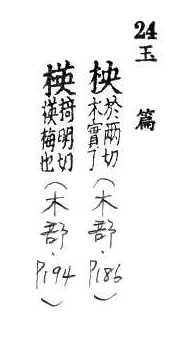 24玉篇
柍 於兩切 木實了 (木部·P186)
楧 猗明切 楧梅也 (木部·P194)